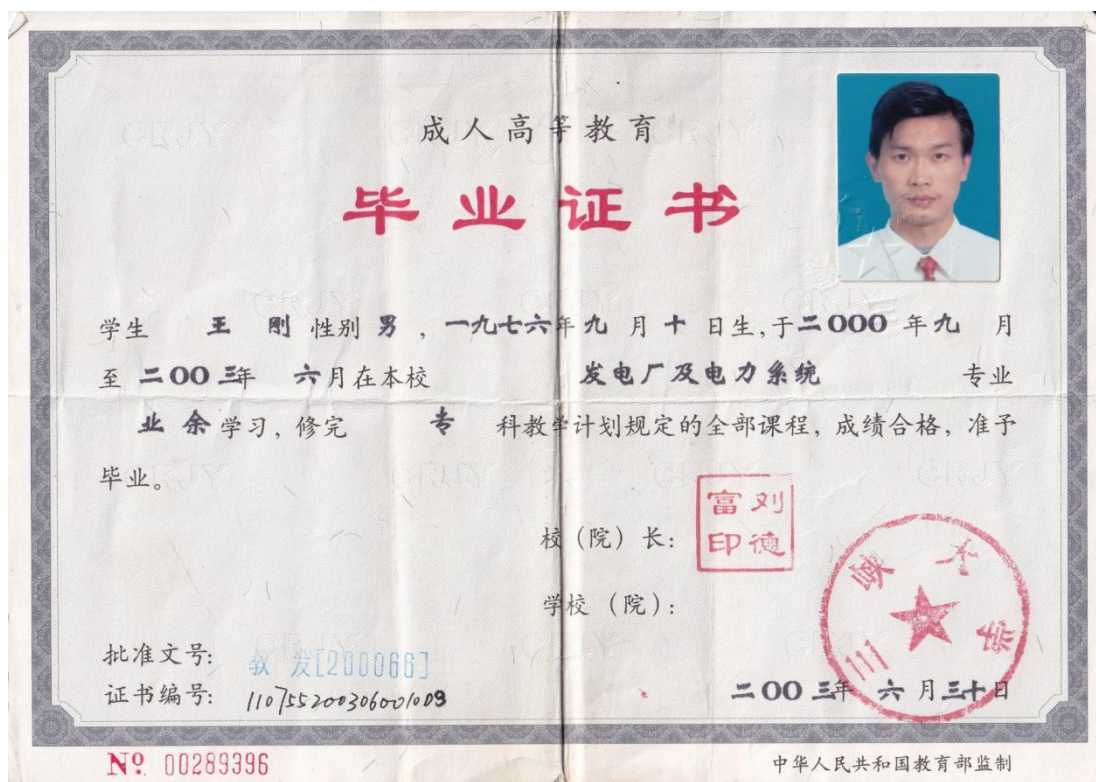 成人高等教育
毕业证书
学生 王刚 性别 男，一九七六年九月十日生，于二〇〇〇年九月
至二〇〇三年 六月在本校 发电厂及电力系统 专业
业余学习，修完 专 科教学计划规定的全部课程，成绩合格，准予
毕业。
校（院）长：
刘德富印
学校（院）：
三峡大学
批准文号： 教发[200066]
证书编号： 110755200306001009
二〇〇三年六月三十日
№ 00289396
中华人民共和国教育部监制
CRJY